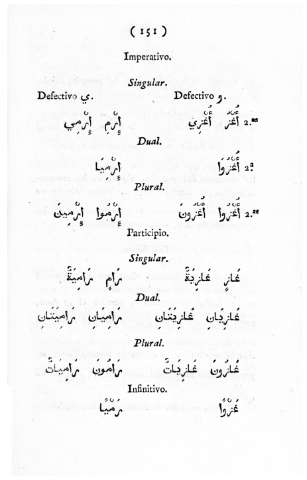 ( 151 )
Imperativo.
Singular.
Defectivo ي. Defectivo و.
2.as أُغْزُ أُغْزِي إِرْمِ إِرْمِي
Dual.
2.a أُغْزُوَا إِرْمِيَا
Plural.
2.as أُغْزُوا أُغْزُونَ إِرْمُوا إِرْمِينَ
Participio.
Singular.
غَازٍ غَازِيَةٌ رَامٍ رَامِيَةٌ
Dual.
غَازِيَانِ غَازِيَتَانِ رَامِيَانِ رَامِيَتَانِ
Plural.
غَازُونَ غَازِيَاتٌ رَامُونَ رَامِيَاتٌ
Infinitivo.
غَزْوًا رَمْيًا